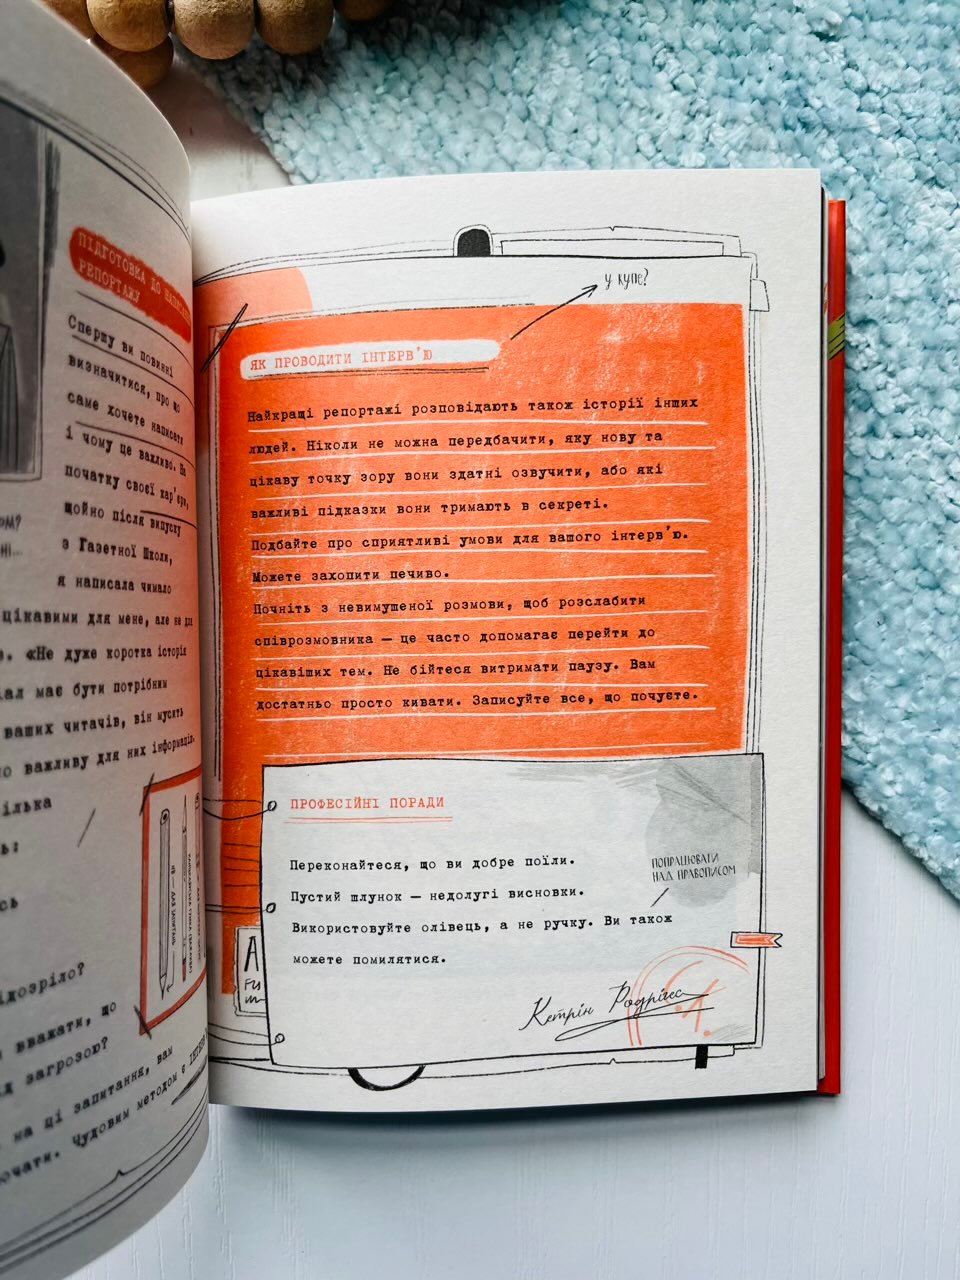 ПІДГОТОВКА ДО
РЕПОРТАЖУ
Спершу ви повинні
визначитися, про що
саме хочете написати
і чому це важливо. На
початку своєї кар'єри,
щойно після випуску
з Газетної Школи,
я написала чимало
цікавими для мене, але не для
«Не дуже коротка історія
має бути потрібним
ваших читачів, він мусить
важливу для них інформацію.
у купе?
ЯК ПРОВОДИТИ ІНТЕРВ'Ю
Найкращі репортажі розповідають також історії інших
людей. Ніколи не можна передбачити, яку нову та
цікаву точку зору вони здатні озвучити, або які
важливі підказки вони тримають в секреті.
Подбайте про сприятливі умови для вашого інтерв'ю.
Можете захопити печиво.
Почніть з невимушеної розмови, щоб розслабити
співрозмовника — це часто допомагає перейти до
цікавіших тем. Не бійтеся витримати паузу. Вам
достатньо просто кивати. Записуйте все, що почуєте.
ПРОФЕСІЙНІ ПОРАДИ
Переконайтеся, що ви добре поїли.
Пустий шлунок — недолугі висновки.
Використовуйте олівець, а не ручку. Ви також
можете помилятися.
ПОПРАЦЮВАТИ
НАД ПРАВОПИСОМ
Кетрін Родрігес
вважати, що
загрозою?
на ці запитання, вам
Чудовим методом є